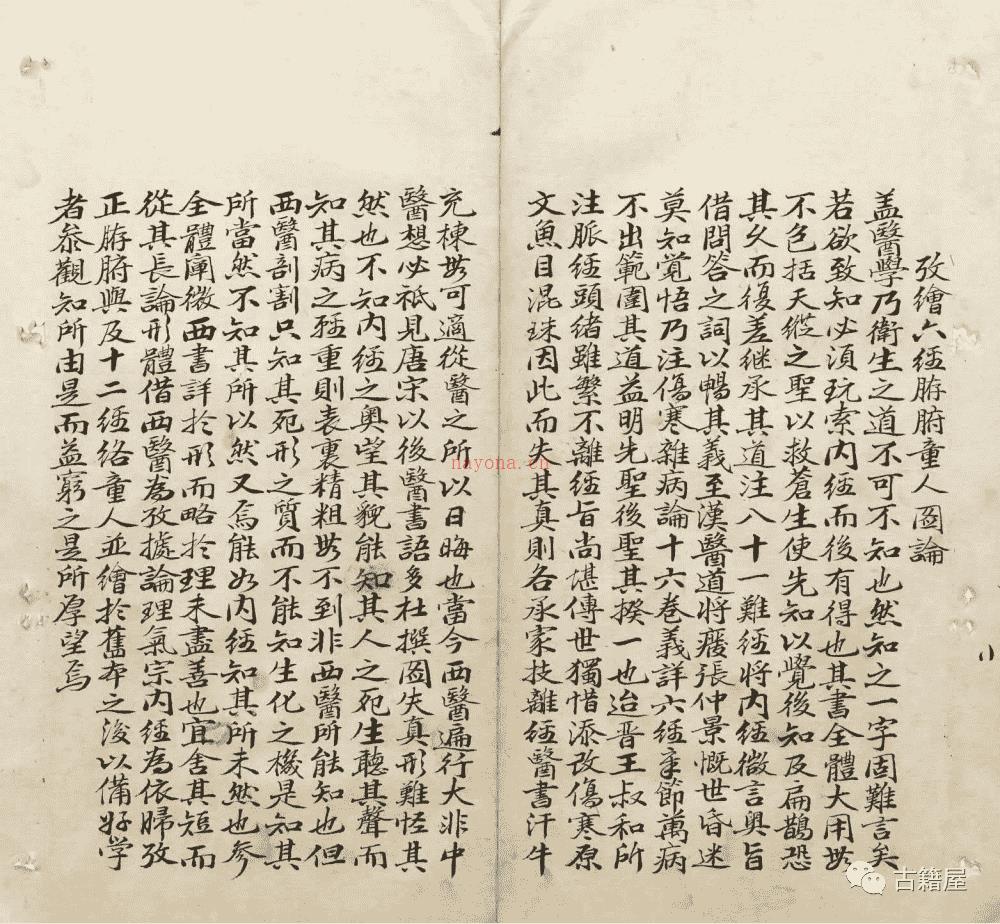 攷繪六經腑腑童人圖論
盖醫學乃衛生之道不可不知也然知之一字固難言矣
若欲致知必須玩索内經而後有得也其書全體大用無
不包括天縱之聖以救蒼生使先知以覺後知及扁鵲恐
其久而復差継承其道注八十一難經將内經微言奥旨
借問答之詞以暢其義至漢醫道將癈張仲景慨世昏迷
莫知覺悟乃注傷寒雜病論十六卷義詳六經章節萬病
不出範圍其道益明先聖後聖其揆一也迨晋王叔和所
注脈經頭緒雖繁不離經旨尚堪傳世獨惜添改傷寒原
文魚目混珠因此而失其真則各承家技離經醫書汗牛
充棟無可適從醫之所以日晦也當今西醫遍行大非中
醫想必祇見唐宋以後醫書語多杜撰圖失真形難怪其
然也不知内經之奥望其貌能知其人之死生聽其聲而
知其病之輕重則表裏精粗無不到非西醫所能知也但
西醫剖割只知其死形之質而不能知生化之機是知其
所當然不知其所以然又焉能如内經知其所未然也參
全體闡微西書詳於形而略於理未盡善也宜舍其短而
從其長論形體借西醫為攷據論理氣宗内經為依歸攷
正腑腑與及十二經絡童人並繪於舊本之後以備好学
者叅觀知所由是而益窮之是所厚望焉
nayona.cn
古籍屋